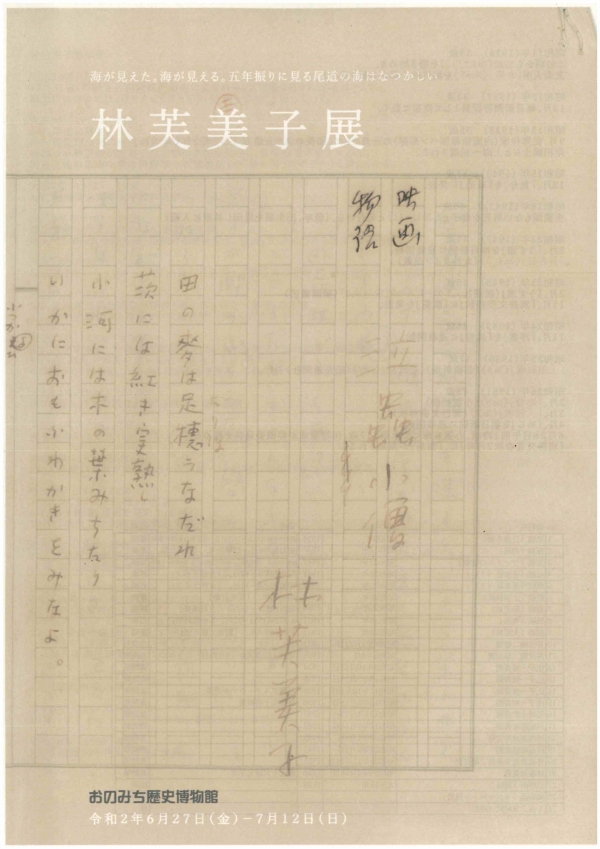 海が見えた。海が見える。五年振りに見る尾道の海はなつかしい。
林芙美子展
三
映画
物語
泣蟲小僧
林芙美子
田の麥は足穂うなだれ
茨には紅き実熟し
小河には木の葉みちたり
いかにおもふわかきをみなよ。
おのみち歴史博物館
令和2年6月27日(金)−7月12日(日)